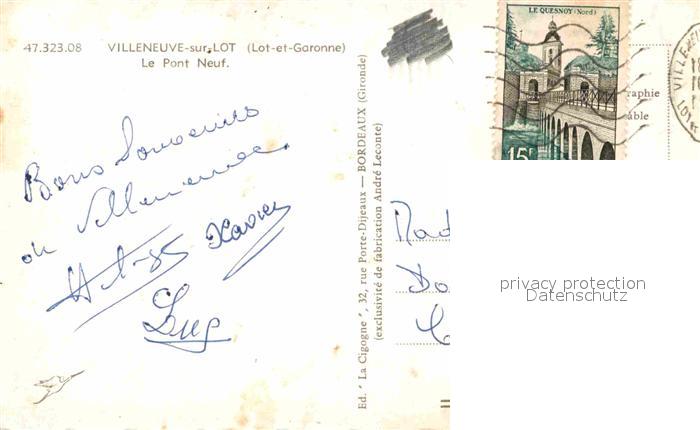 47.323.08 VILLENEUVE-sur-LOT (Lot-et-Garonne)
Le Pont Neuf.
Bons Souvenirs
de Villeneuve.
Xavier
Luc
Ed. " La Cigogne ", 32, rue Porte-Dijeaux — BORDEAUX (Gironde)
(exclusivité de fabrication André Leconte)
LE QUESNOY (Nord)
15F
raphie
able
Mad
Do
privacy protection
Datenschutz